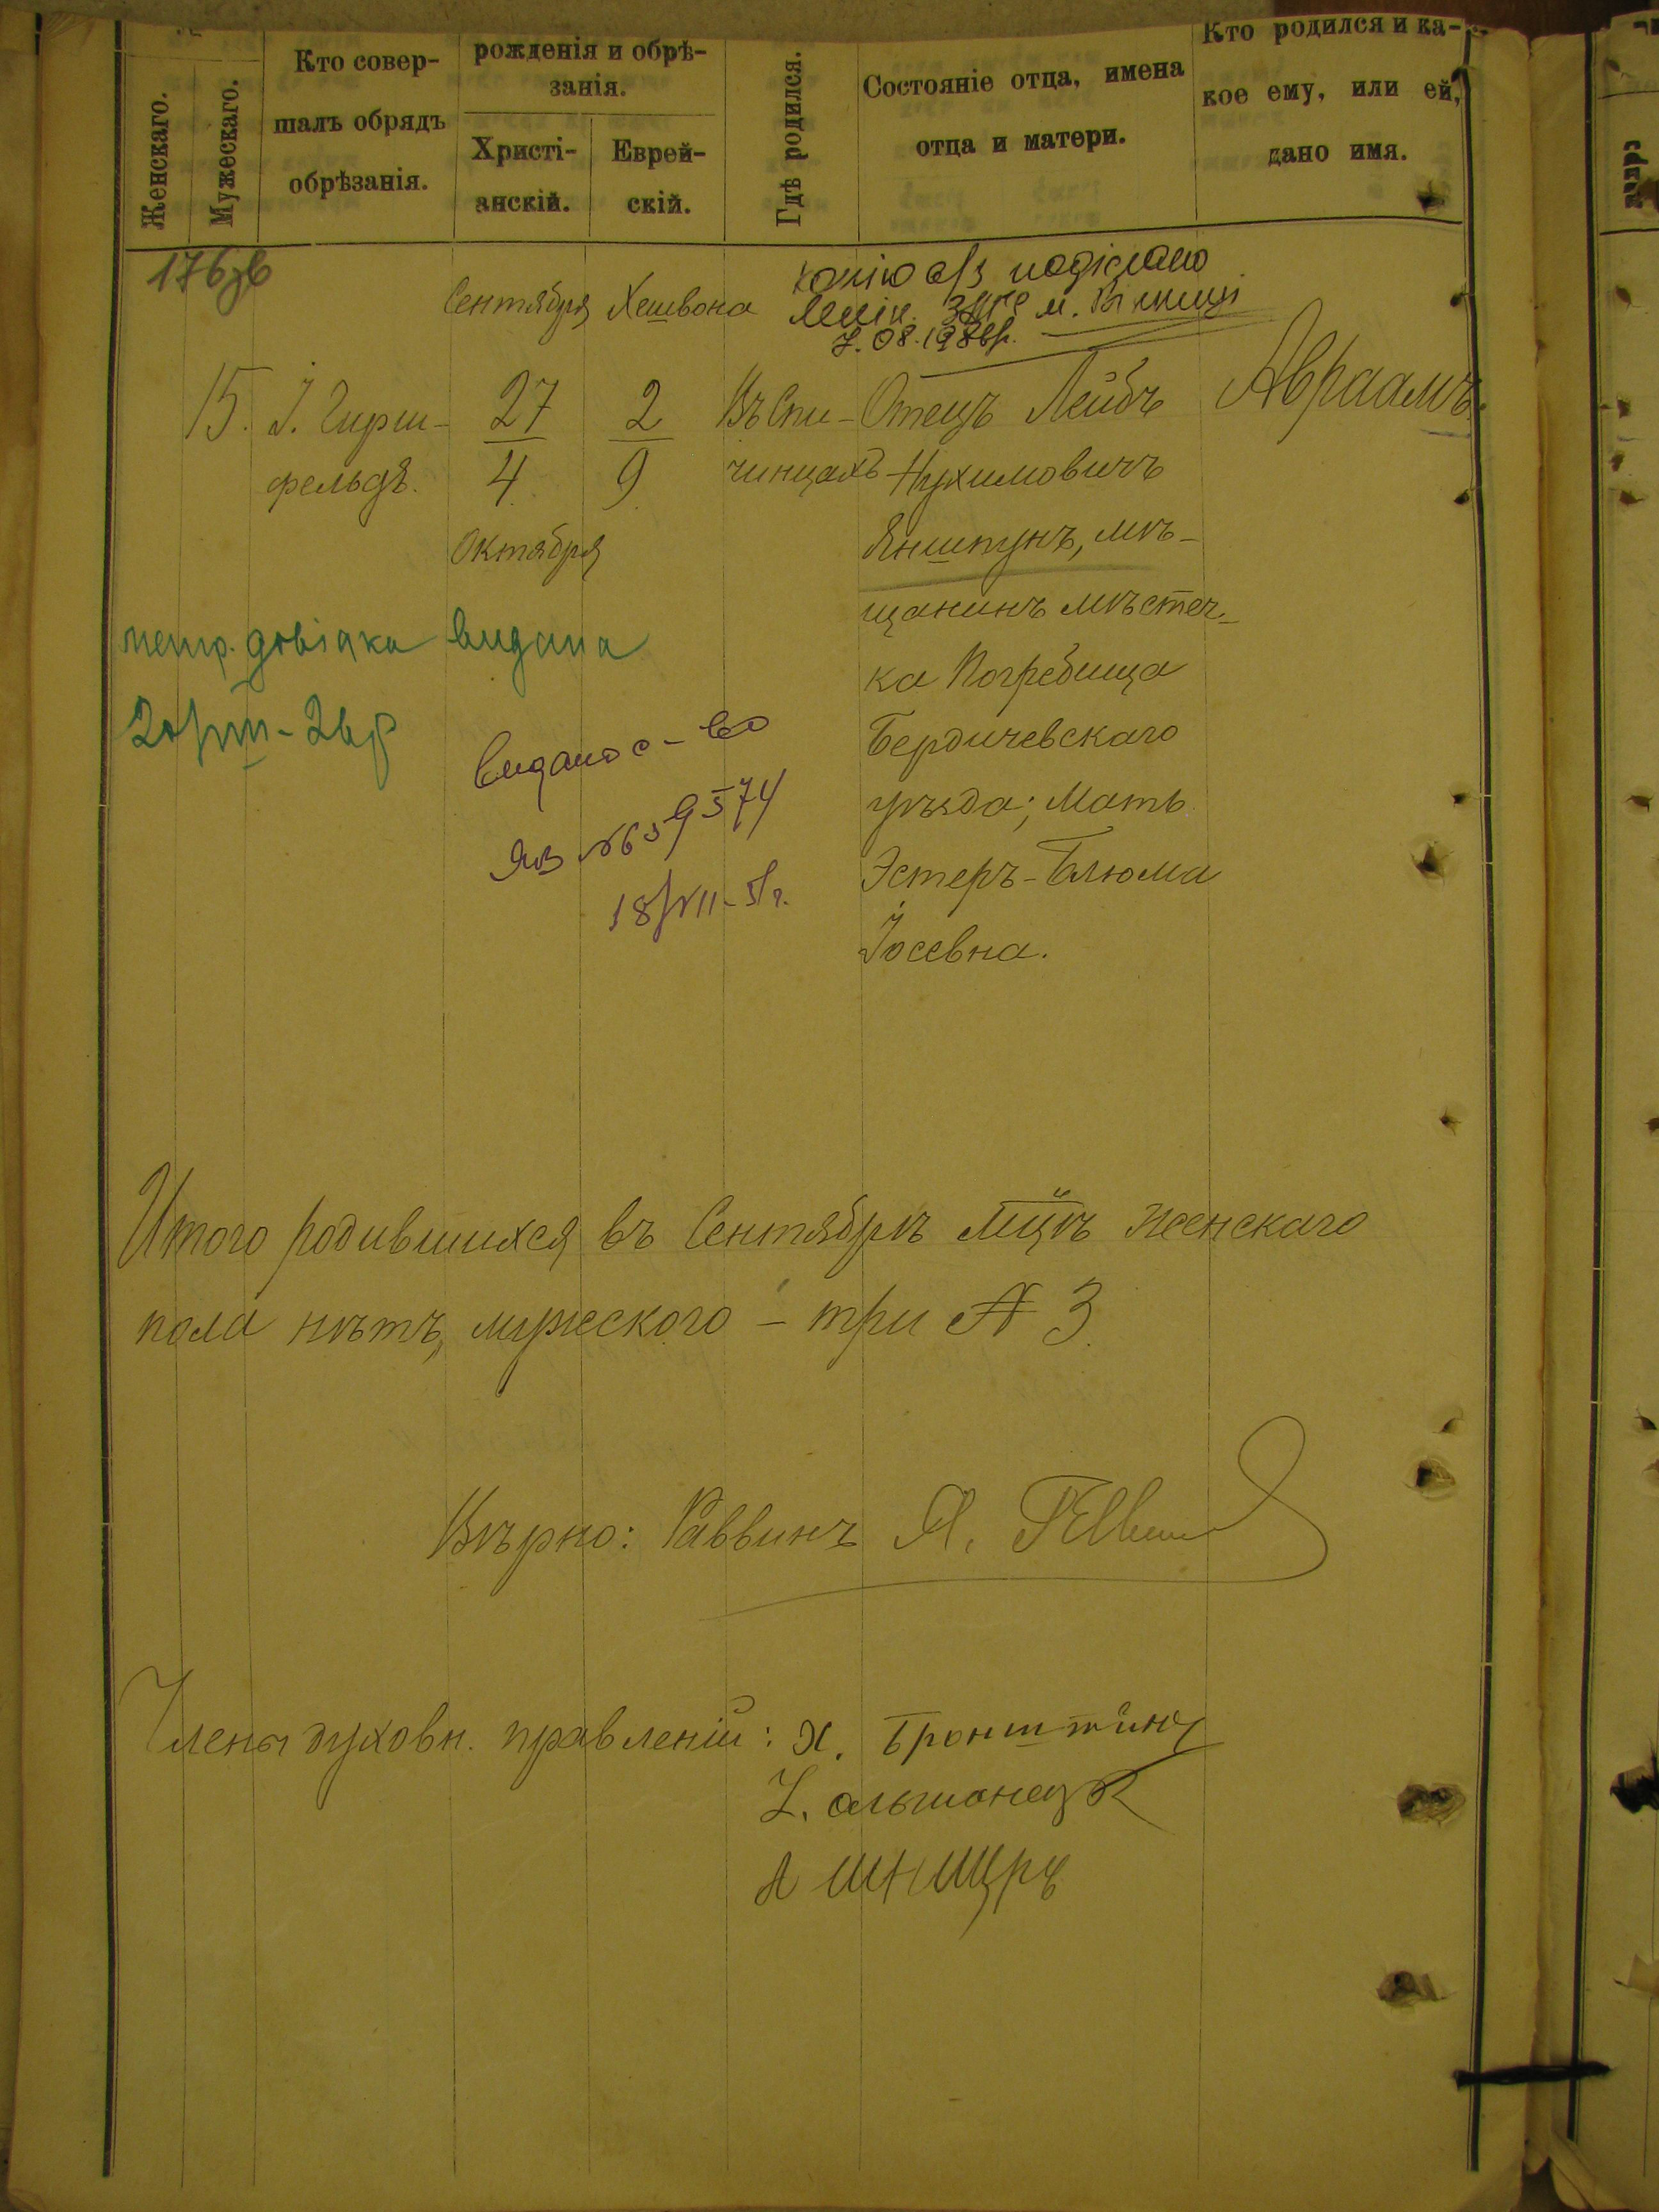 Женскаго.
Мужескаго.
Кто совер-
шалъ обрядъ
обрѣзанія.
рожденія и обрѣ-
занія.
Христі-
анскій.
Еврей-
скій.
Гдѣ родился.
Состояніе отца, имена
отца и матери.
Кто родился и ка-
кое ему, или ей,
дано имя.
176зв
Сентября Хешвона
копію а/з надіслано
м. Вінниці
7.08.1986р.
15. І. Гирш- 27 2 Въ Спи- Отецъ Лейбъ Авраамъ.
фельдъ. 4 9 чинцахъ Нухимовичъ
Октября Яншпунъ, мѣ-
щанинъ мѣстеч-
ка Погребища
Бердичевскаго
уѣзда; Мать
Эстеръ-Блюма
Іосевна.
метр. довідка видана
20/VIII-26р
Видано с-во
ЯВ №659574
18/VII-51г.
Итого родившихся въ Сентябрѣ мцѣ женскаго
пола нѣтъ, мужескаго - три № 3.
Вѣрно: Раввинъ Я.
Члены духовн. правленій: Х. Бронштйнъ